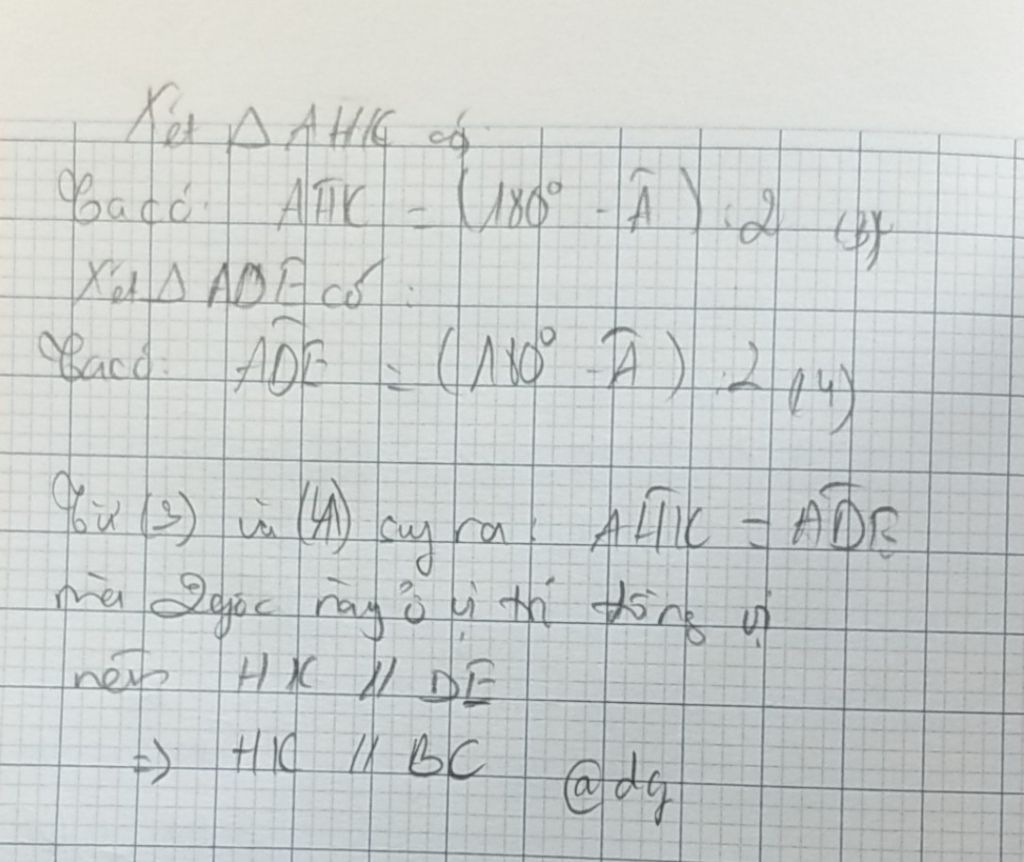 Xét Δ AHK có
Ta có: AHK = (180° - Â) : 2 (3)
Xét Δ ADE có :
Ta có: ADE = (180° - Â) : 2 (4)
Từ (3) và (4) suy ra: AHK = ADE
mà 2 góc này ở vị trí đồng vị
nên HK // DE
=> HK // BC @dg